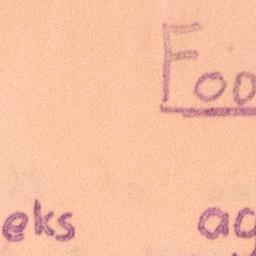 Foo
eks ag